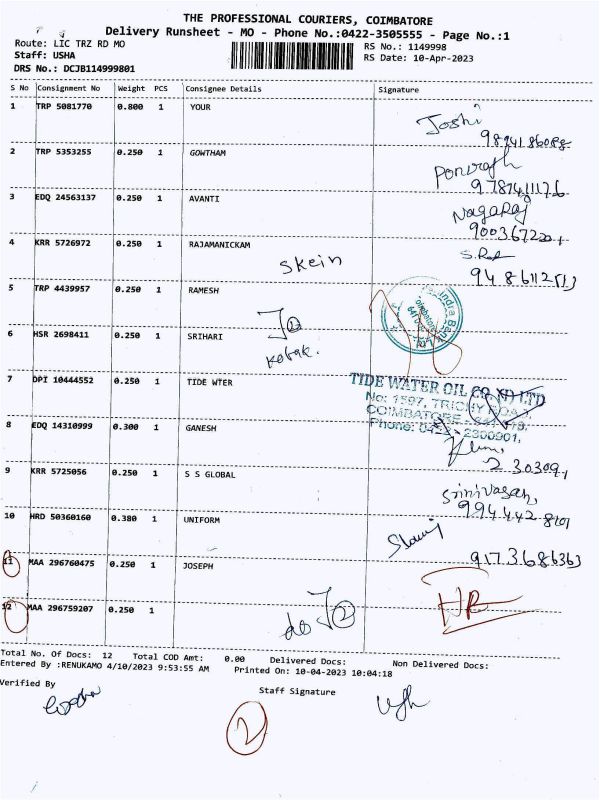 THE PROFESSIONAL COURIERS, COIMBATORE
Delivery Runsheet - MO - Phone No.:0422-3505555 - Page No.:1
Route: LIC TRZ RD MO
RS No.: 1149998
Staff: USHA
RS Date: 10-Apr-2023
DRS No.: DCJB114999801
S No Consignment No Weight PCS Consignee Details Signature
1 TRP 5081770 0.800 1 YOUR
Joshi
2 TRP 5353255 0.250 1 GOWTHAM
Ponraj
9787411176
3 EDQ 24563137 0.250 1 AVANTI
Nagaraj
9003672201
4 KRR 5726972 0.250 1 RAJAMANICKAM
Skein
5 TRP 4439957 0.250 1 RAMESH
6 HSR 2698411 0.250 1 SRIHARI
Kotak.
7 DPI 10444552 0.250 1 TIDE WTER
TIDE WATER OIL CO. (I) LTD
No: 1597, TRICHY ROAD
COIMBATORE
Phone: 0422 - 2300901,
8 EDQ 14310999 0.300 1 GANESH
9 KRR 5725056 0.250 1 S S GLOBAL
Srinivasan,
10 HRD 50360160 0.380 1 UNIFORM
9173686363
11 MAA 296760475 0.250 1 JOSEPH
12 MAA 296759207 0.250 1
do
Total No. Of Docs: 12 Total COD Amt: 0.00 Delivered Docs: Non Delivered Docs:
Entered By :RENUKAMO 4/10/2023 9:53:55 AM Printed On: 10-04-2023 10:04:18
Verified By
Staff Signature
2